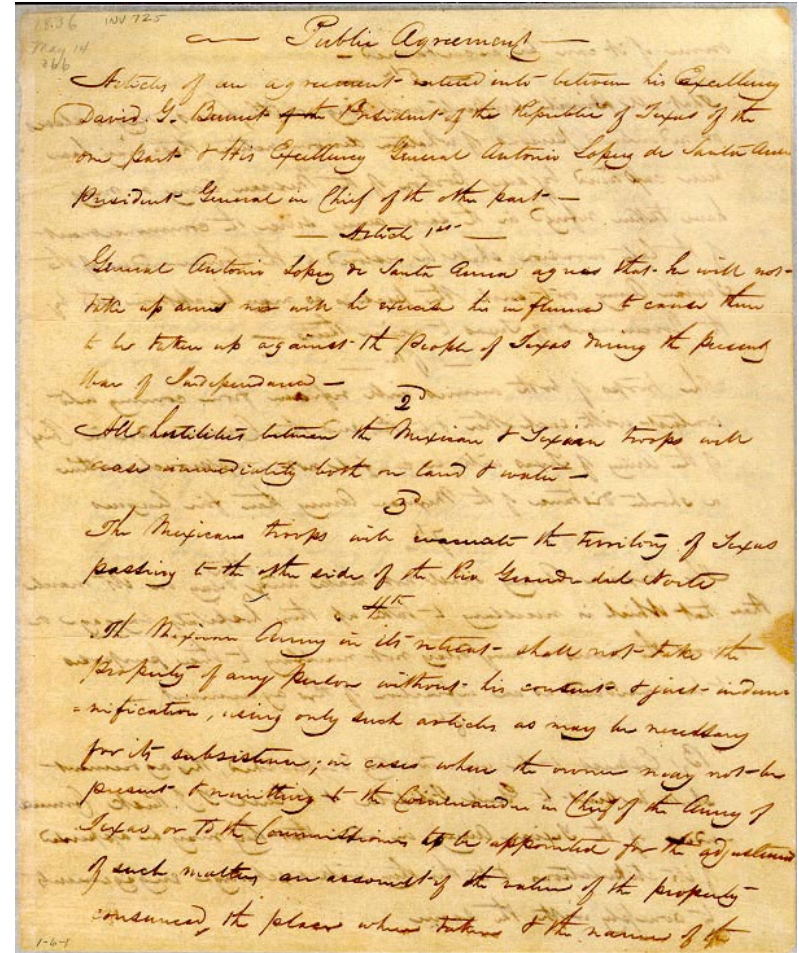 1836 INV 725
May 14
266
Public Agreement
Articles of an agreement entered into between his Excellency
David G. Burnet of the President of the Republic of Texas of the
one part & His Excellency General Antonio Lopez de Santa Anna
President General in Chief of the other part —
— Article 1st —
General Antonio Lopez de Santa Anna agrees that he will not
take up arms nor will he exercise his influence to cause them
to be taken up against the People of Texas during the present
War of Independence —
2d
All hostilities between the Mexican & Texian troops will
cease immediately both on land & water —
3d
The Mexican troops will evacuate the territory of Texas
passing to the other side of the Rio Grande del Norte
4th
The Mexican Army in its retreat shall not take the
property of any person without his consent & just indem
=nification, using only such articles as may be necessary
for its subsistence, in cases where the owner may not be
present & remitting to the Commander in Chief of the Army of
Texas or to the Commissioner to be appointed for the adjustment
of such matters an account of the value of the property
consumed, the place where taken & the name of the
1-6-1